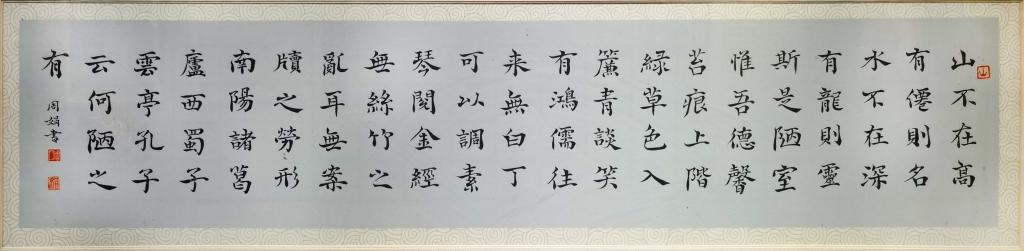 山不在高
有僊則名
水不在深
有龍則靈
斯是陋室
惟吾德馨
苔痕上階
緑草色入
簾青談笑
有鴻儒往
来無白丁
可以調素
琴閱金經
無絲竹之
亂耳無案
牘之勞形
南陽諸葛
廬西蜀子
雲亭孔子
云何陋之
有
周娟書